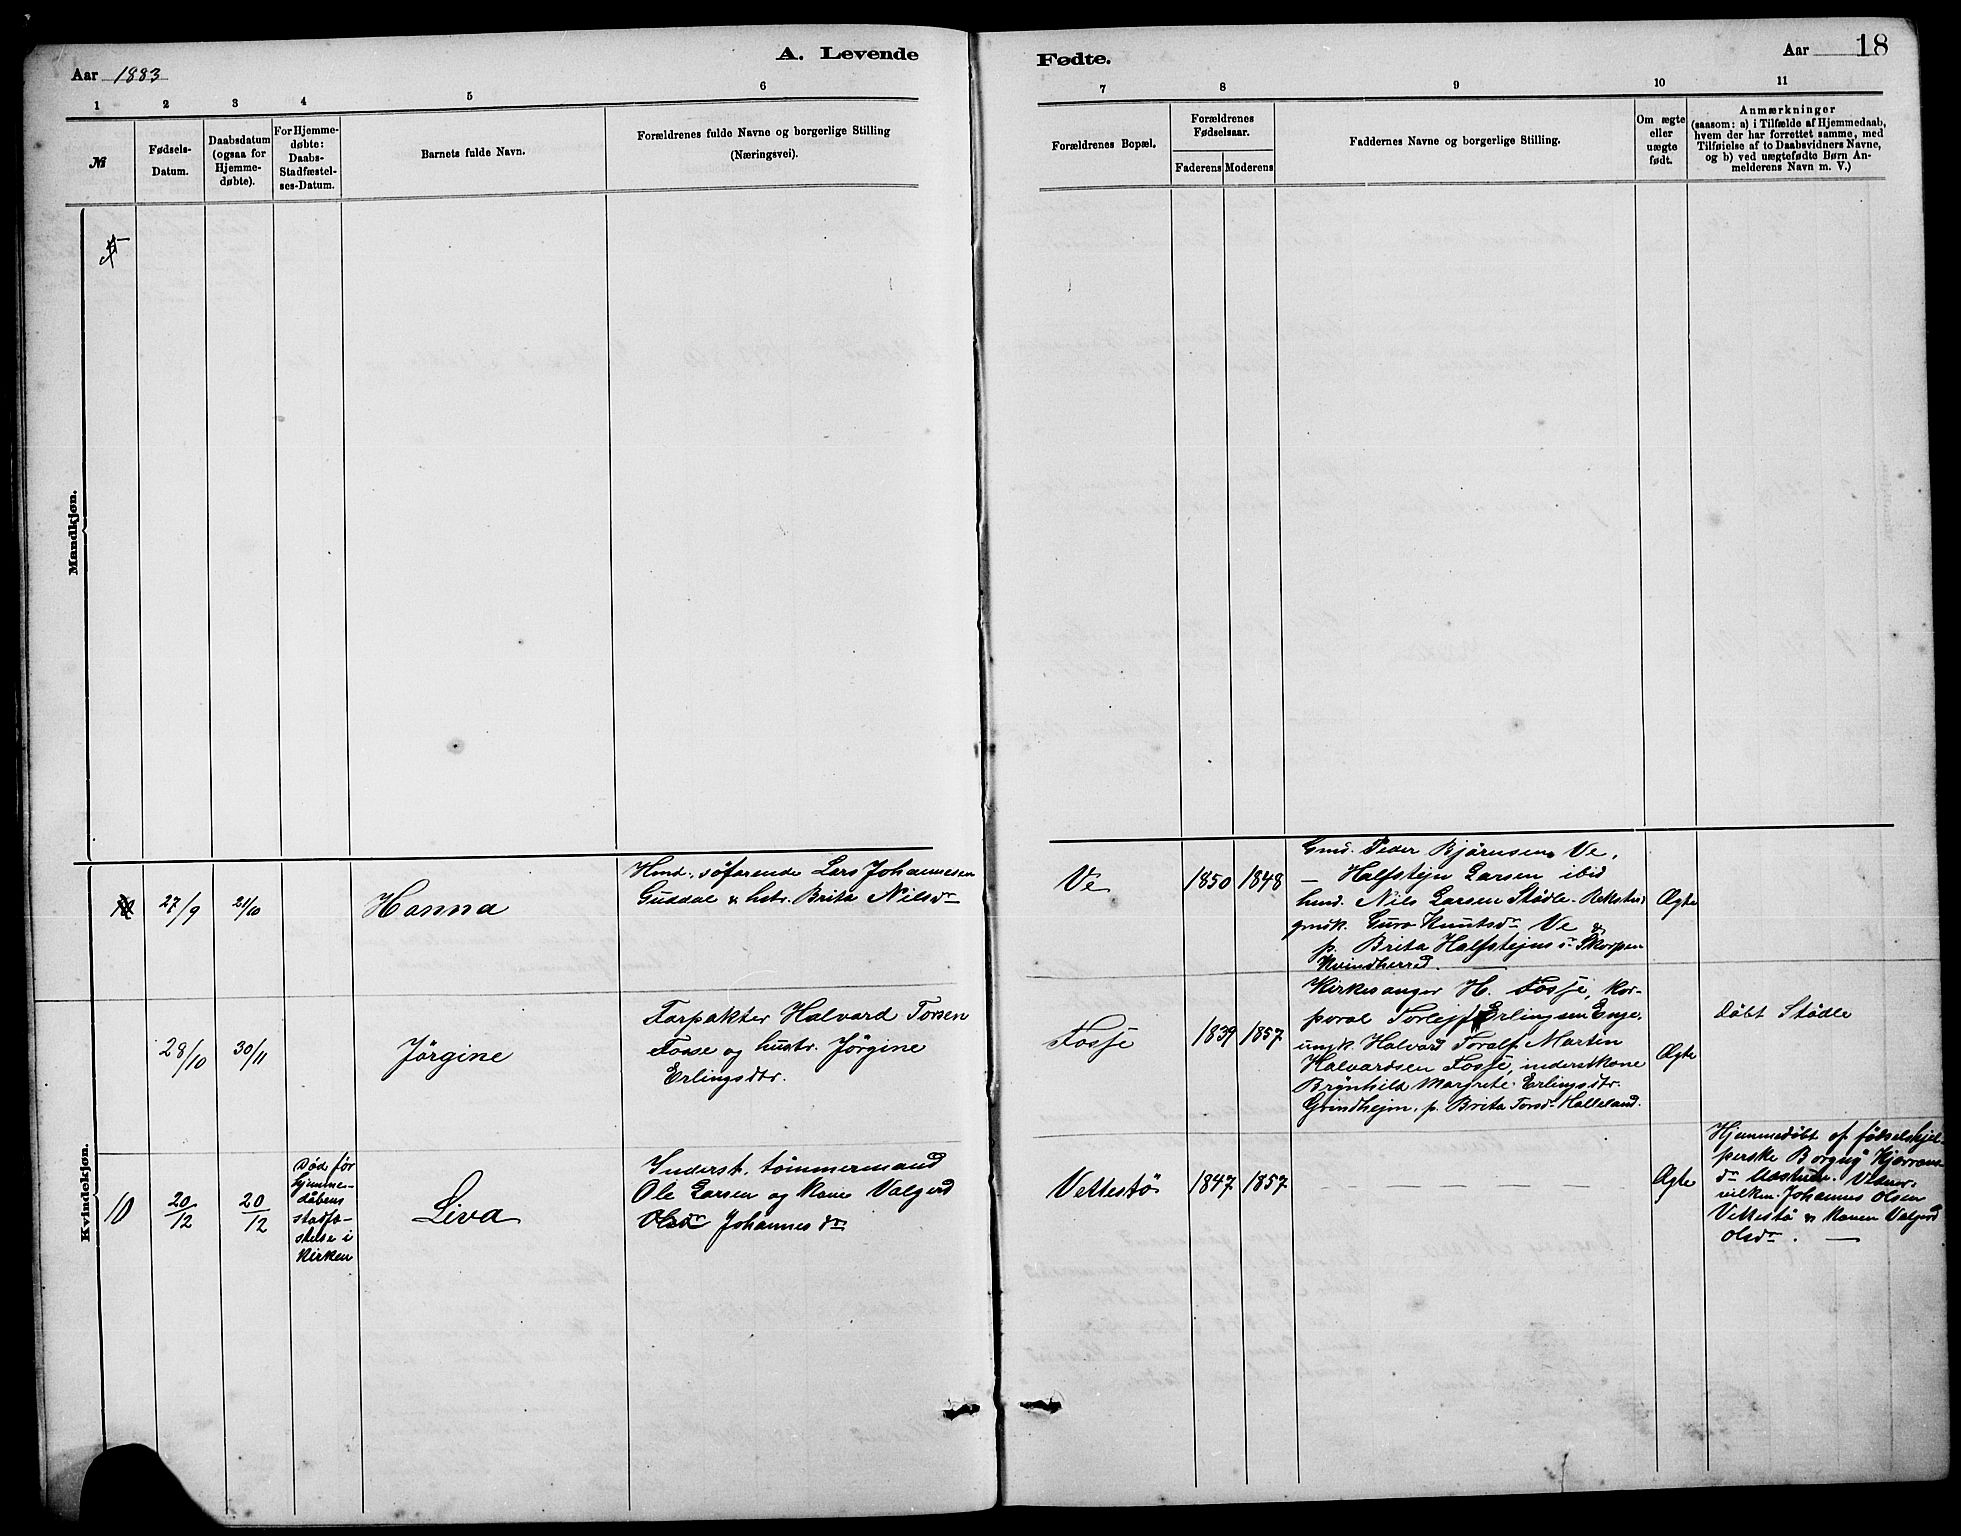 A. Levende
Fødte.
Aar 1883
Aar 18
1 2 3 4 5 6
7 8 9 10 11
№
Fødsels-
Datum.
Daabsdatum
(ogsaa for
Hjemme-
døbte).
For Hjemme-
døbte:
Daabs-
Stadfæstel-
ses-Datum.
Barnets fulde Navn.
Forældrenes fulde Navne og borgerlige Stilling
(Næringsvei).
Forældrenes Bopæl.
Forældrenes
Fødselsaar.
Faderens Moderens
Faddernes Navne og borgerlige Stilling.
Om ægte
eller
uægte
født.
Anmærkninger
(saasom: a) i Tilfælde af Hjemmedaab,
hvem der har forrettet samme, med
Tilføielse af to Daabsvidners Navne,
og b) ved uægtefødte Børn An-
melderens Navn m. V.)
Mandkjøn.
Kvindekjøn.
27/9
21/10
Hanna
Hmd. søfarende Lars Johannesen
Guddal & hstr. Brita Nilsdr
Ve
1850 1848
Gmd. Peder Bjørnsen Ve,
— Halfstejn Larsen ibid
hmd. Nils Larsen Stødle
gmdk. Guro Knutsdr Ve &
p. Brita Halfstejnsdr Skorpen
Kvindherred.
Ægte
28/10
30/11
Jørgine
Forpakter Halvard Torsen
Fosse og hustr. Jørgine
Erlingsdtr.
Fosse
1839 1857
Kirkesanger H. Fosse, Kor-
poral Torlejf Erlingsen Enge,
ungk. Halvard Toralf Martin
Halvardsen Fosse, inderstkone
Brynhild Margrete Erlingsdtr.
Grindhejm, p. Brita Torsdr Halleland.
Ægte
døbt Stødle
10
20/12
20/12
Død før
hjemme-
dåbens
stadfæ-
stelse i
Kirken
Liva
Inderst. tømmermand
Ole Larsen og Kone Valgerd
Johannesdr
Vettestø
1847 1857
— — — — — —
Ægte
Hjemmedøbt af fødselshjel-
perske Borgny
dr
Johannes Olsen
Vettestø & Konen Valgerd
Olsdr. —